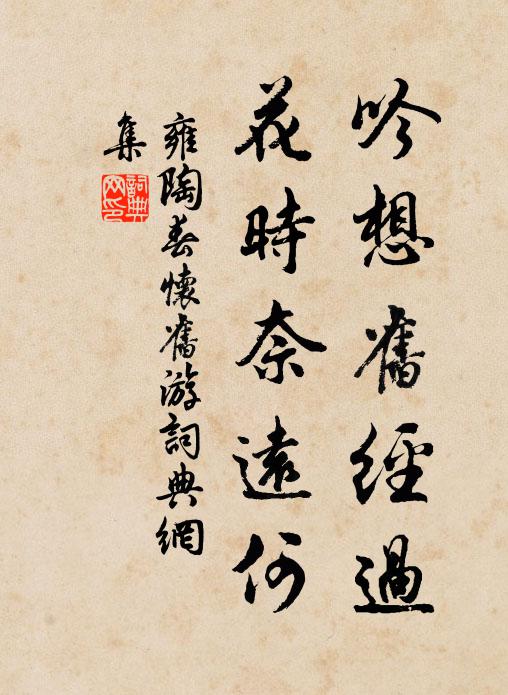 吟想舊經過
花時奈遠何
雍陶春懷舊游詞典網
集
詞典
網印